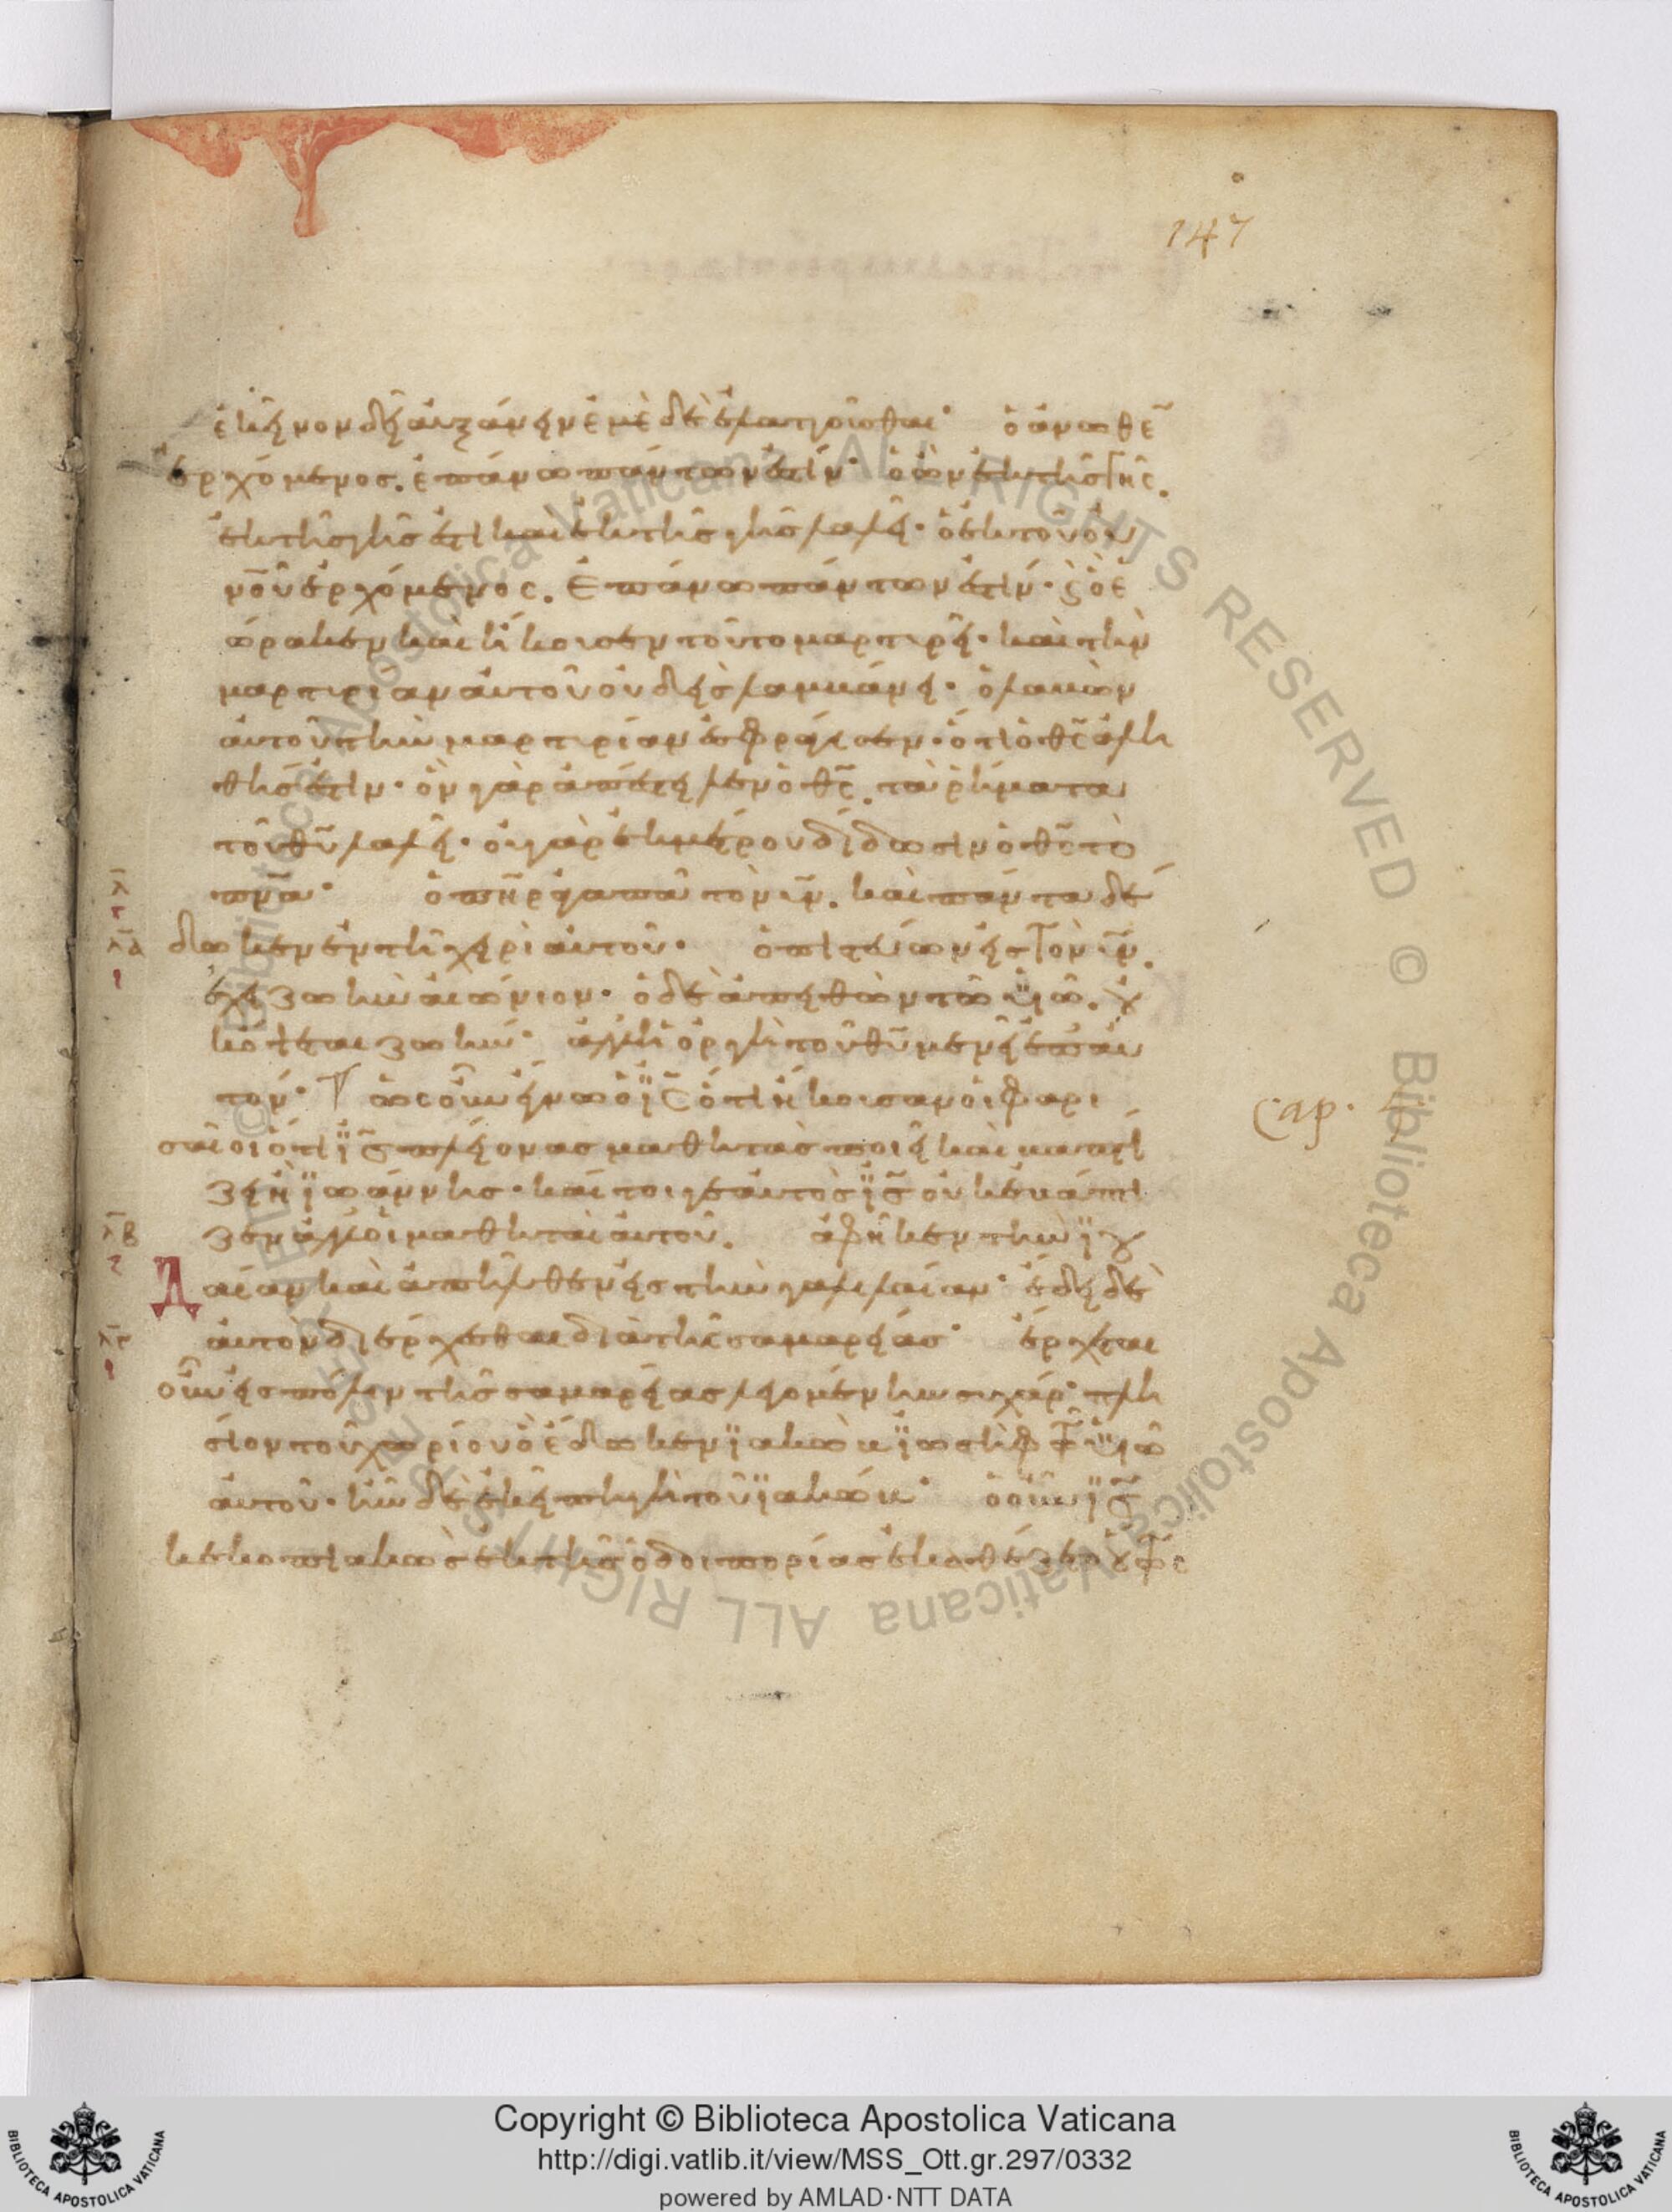 147
ἐκεῖνον δεῖ αὐξάνειν ἐμὲ δὲ ἐλαττοῦσθαι· ὁ ἄνωθε̄
ἐρχόμενος. ἐπάνω πάντων ἐστίν· ὁ ὢν ἐκ τῆς γῆς.
ἐκ τῆς γῆς ἐστι καὶ ἐκ τῆς γῆς λαλεῖ· ὁ ἐκ τοῦ οὐ
νοῦ ἐρχόμενος. ἐπάνω πάντων ἐστίν· ϗ ὃ ἑ
ώρακεν καὶ ἤκουσεν τοῦτο μαρτυρεῖ· καὶ τὴν
μαρτυρίαν αὐτοῦ οὐδεὶς λαμβάνει· ὁ λαβὼν
αὐτοῦ τὴν μαρτυρίαν ἐσφράγισεν· ὅτι ὁ θ̄ς ἀλη
θής ἐστιν· ὃν γὰρ ἀπέστειλεν ὁ θ̄ς. τὰ ῥήματα
τοῦ θ̄υ λαλεῖ· οὐ γὰρ ἐκ μέτρου δίδωσιν ὁ θ̄ς τὸ
π̄να· ὁ π̄ηρ ἀγαπᾶ τὸν ῡν. καὶ πάντα δέ
δωκεν ἐν τῇ χειρὶ αὐτοῦ· ὁ πιστεύων εἰς τὸν ῡν.
ἔχει ζωὴν αἰώνιον· ὁ δὲ ἀπειθῶν τῶ υἱῶ. οὐ
κ ὄψεται ζωήν· ἀλλ' ἡ ὀργὴ τοῦ θ̄υ μένει ἐπ' αὐ
τόν· ὡς οὖν ἔγνω ὁ ϊ̄ς ὅτι ἤκουσαν οἱ φαρι
σαῖοι ὅτι ϊ̄ς πλείονας μαθητὰς ποιεῖ καὶ βαπτί
ζει ἢ ϊωάννης· καίτοιγε αὐτὸς ϊ̄ς οὐκ ἐβάπτι
ζεν ἀλλ' οἱ μαθηταὶ αὐτοῦ. ἀφῆκεν τὴν ϊου
δαίαν καὶ ἀπῆλθεν εἰς τὴν γαλιλαίαν· ἔδει δὲ
αὐτὸν διέρχεσθαι διὰ τῆς σαμαρείας· ἔρχεται
οὖν εἰς πόλιν τῆς σαμαρείας λεγομένην συχάρ· πλη
σίον τοῦ χωρίου ὃ ἔδωκεν ϊακὼβ ϊωσὴφ τῶ υἱῶ
αὐτοῦ· ἦν δὲ ἐκεῖ πηγὴ τοῦ ϊακώβ· ὁ οὖν ϊ̄ς
κεκοπιακὼς ἐκ τῆς ὁδοιπορίας ἐκαθέζετο οὕτως
λ
λα
λβ
λγ
Cap. 4
Copyright © Biblioteca Apostolica Vaticana
http://digi.vatlib.it/view/MSS_Ott.gr.297/0332
powered by AMLAD·NTT DATA